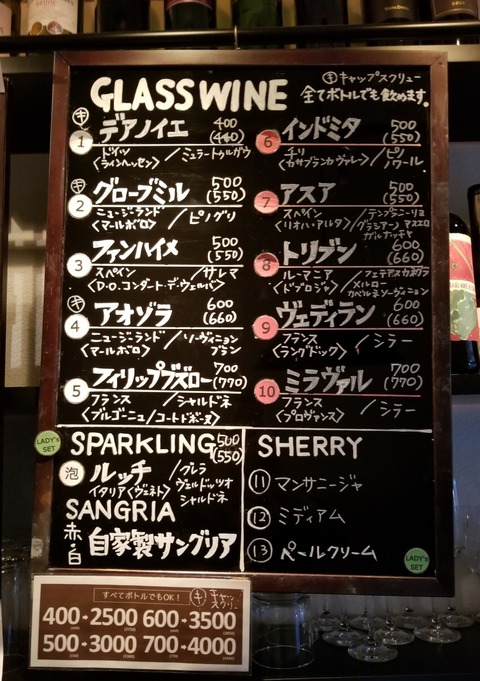 GLASS WINE
㋖キャップスクリュー
全てボトルでも飲めます。
㋖
1 デアノイエ 400
(440)
ドイツ
〈ラインヘッセン〉/ミュラートゥルガウ
㋖
2 グローブミル 500
(550)
ニュージーランド
〈マールボロ〉/ピノグリ
3 ファンハイメ 500
(550)
スペイン
〈D.O.コンダート・デ・ウェルバ〉/サレマ
㋖
4 アオゾラ 600
(660)
ニュージーランド
〈マールボロ〉/ソーヴィニョン
ブラン
5 フィリップブズロー 700
(770)
フランス
〈ブルゴーニュ/コートドボーヌ〉/シャルドネ
6 インドミタ 500
(550)
チリ
〈カサブランカヴァレー〉/ピノ
ノワール
7 アスア 500
(550)
スペイン
〈リオハ・アルタ〉/テンプラニーリョ
グラシアーノ マスエロ
ガルナッチャ
8 トリブン 600
(660)
ルーマニア
〈ドブロジャ〉/フェテアスカネグラ
メルロー
カベルネソーヴィニョン
9 ヴェディラン 600
(660)
フランス
〈ラングドック〉/シラー
10 ミラヴァル 700
(770)
フランス
〈プロヴァンス〉/シラー
LADY's
SET
SPARKLING 500
(550)
泡 ルッチ
イタリア〈ヴェネト〉/グレラ
ヴェルドッツオ
シャルドネ
SANGRIA
赤・白 自家製サングリア
SHERRY
11 マンサニージャ
12 ミディアム
13 ペールクリーム
LADY's
SET
すべてボトルでもOK! ㋖キャップスクリュー
400→2500 600→3500
500→3000 700→4000